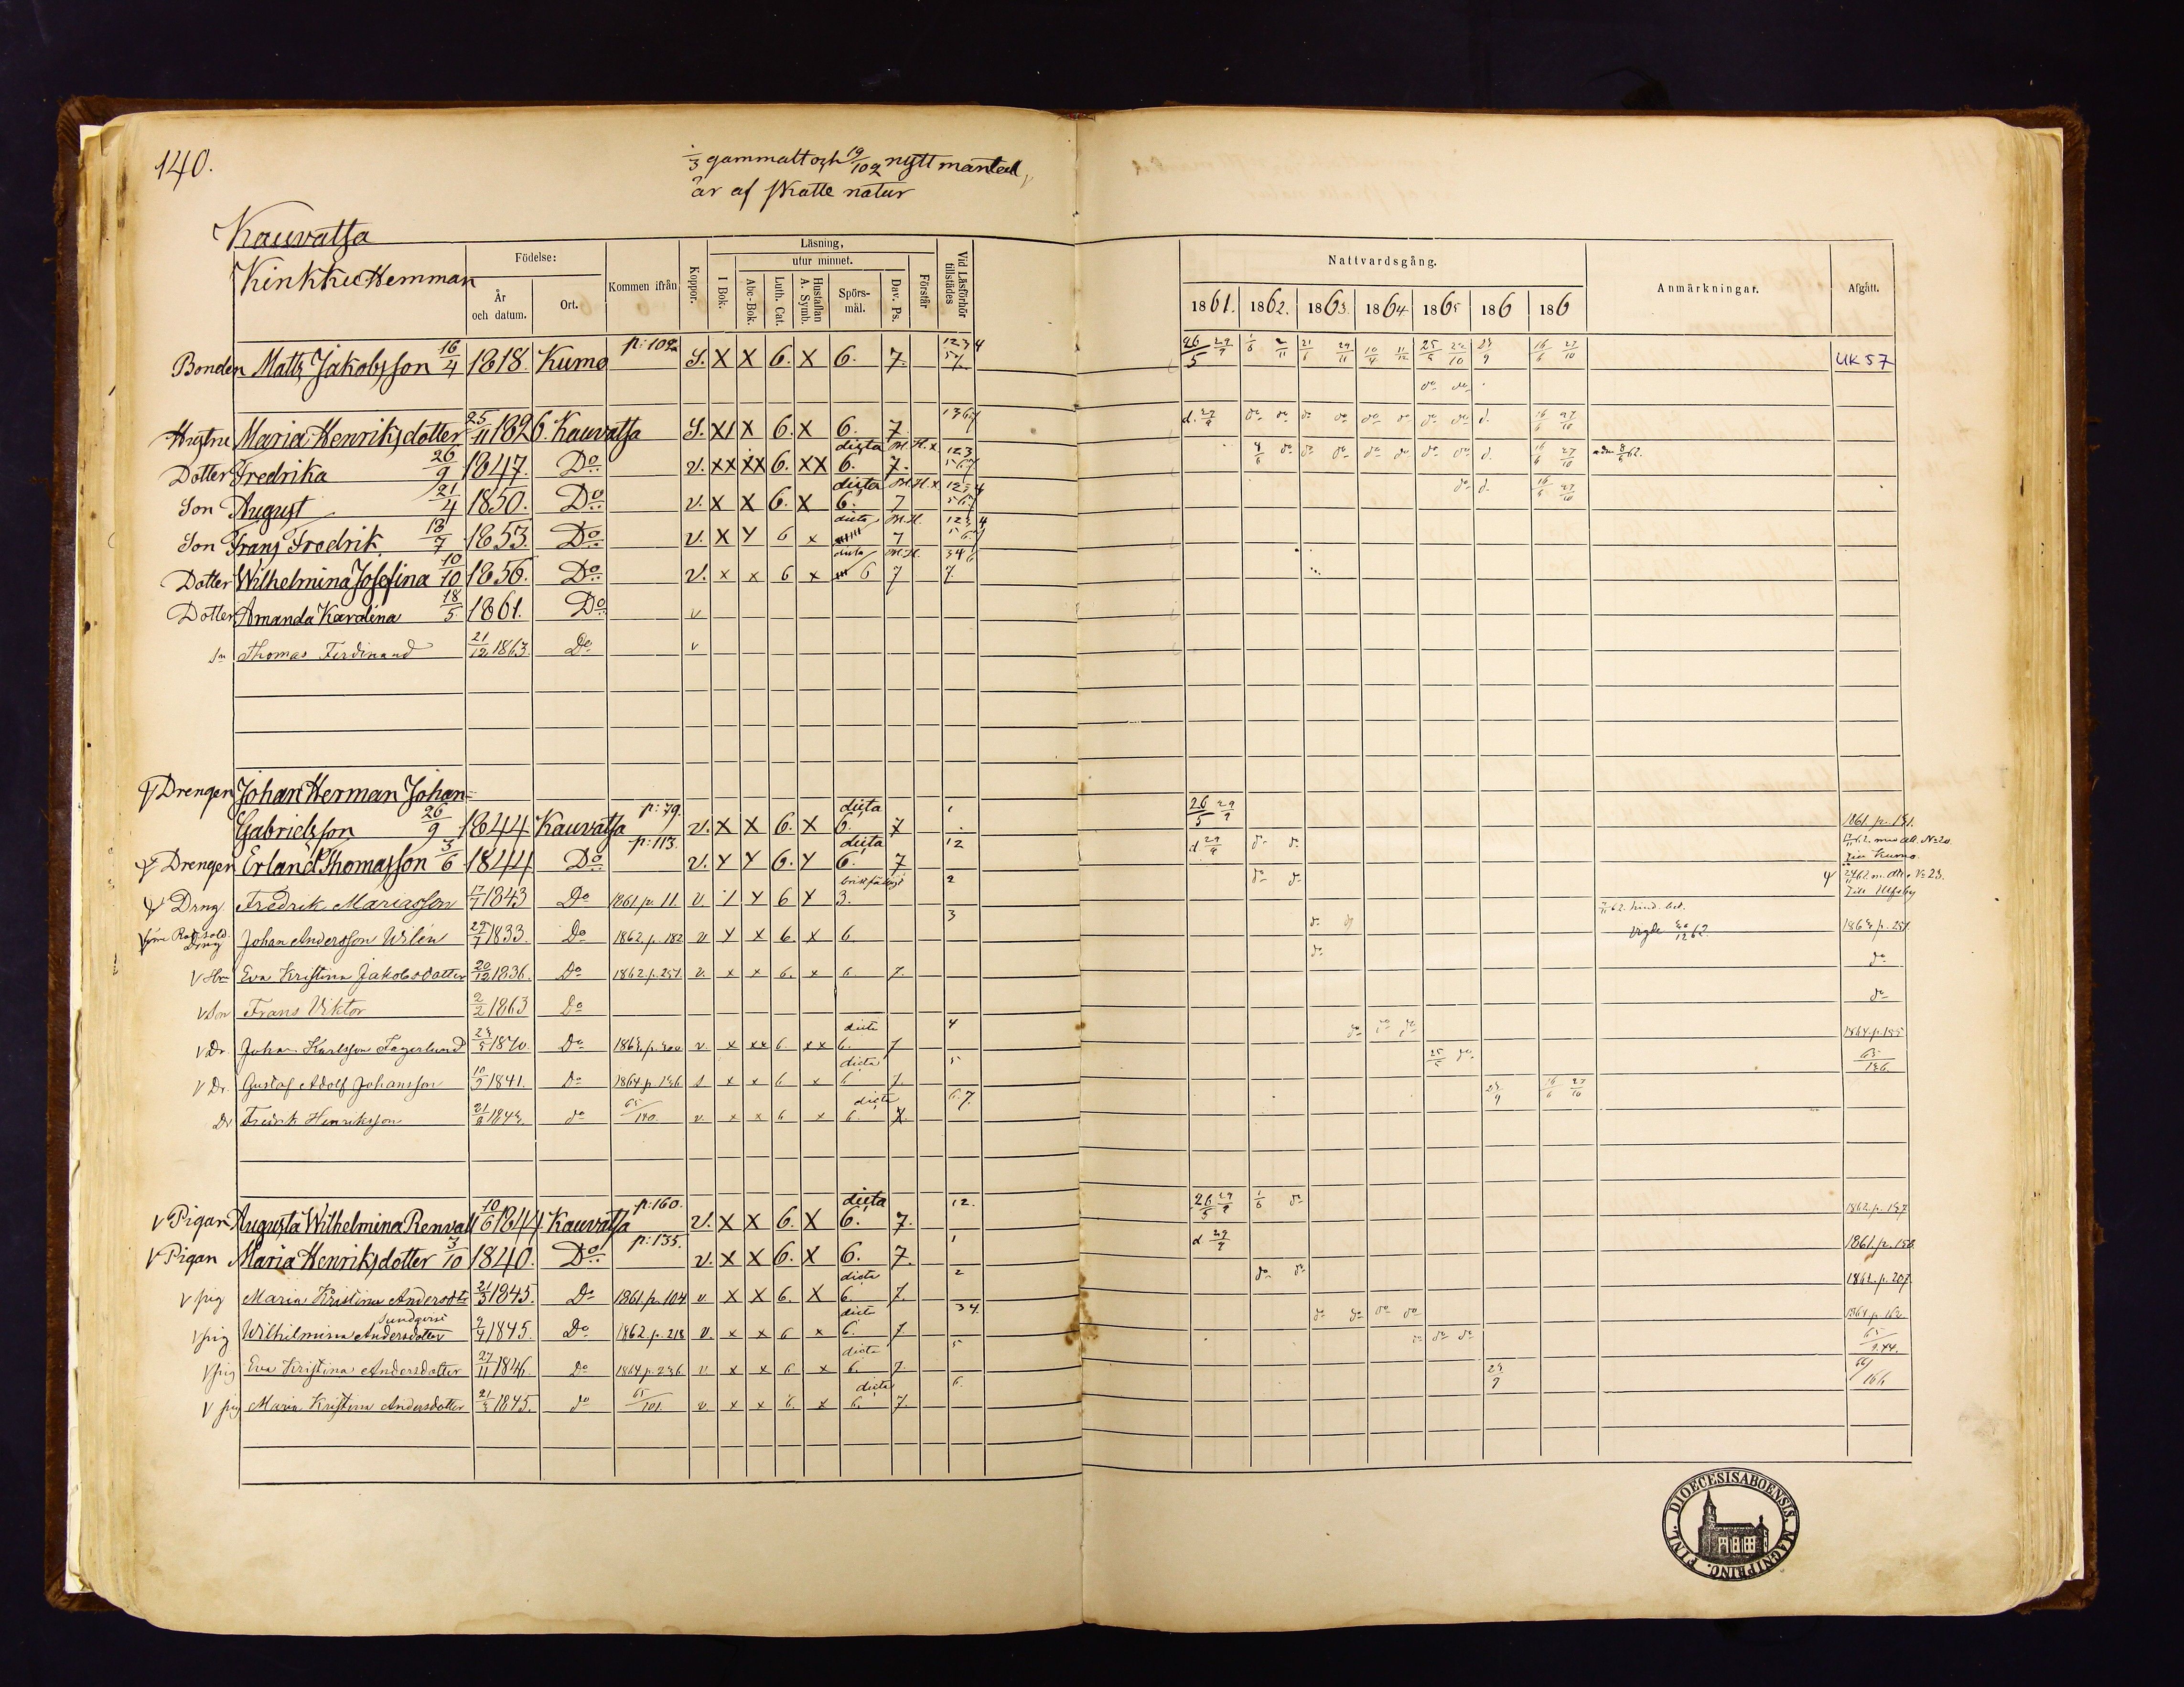 140.
1/3 gammalt och 19/102 nytt mantal,
är af skatte natur
Kauvatsa
Kinkki Hemman
Födelse: År och datum. Ort. Kommen ifrån Koppor. Läsning, I Bok. utur minnet. Abc-Bok. Luth. Cat. Hustaflan A. Symb. Spörsmål. Dav. Ps. Förstår Vid Läsförhör tillstädes
Nattvardsgång. 1861. 1862. 1863. 1864. 1865 186 186 Anmärkningar. Afgått.
Bonden Matts Jakobsson 16/4 1818. Kumo p: 102a S. X X 6. X 6. 7. 1234 57. 26/5 29/9 1/6 2/11 21/6 29/11 10/4 11/12 25/5 22/10 23/9 16/6 27/10 UK 57
do do
Hustru Maria Henriksdotter 25/11 1826. Kauvatsa S. X X 6. X 6. 7. 1367 d. 29/9 do do do do do do do do d. 16/6 27/10
Dotter Fredrika 26/9 1847. Do v. XX XX 6. XX dicta 6. 7. 123 567 do do do do do do do d. 16/6 27/10
Son August 21/4 1850. Do v. X X 6. X dicta 6. 7 1234 567 do d. 16/6 27/10
Son Frans Fredrik 18/7 1853. Do v. X X 6 x dicta 7 1234
Dotter Wilhelmina Josefina 10/10 1856. Do v. x x 6 x dicta 6 7 346 7.
Dotter Amanda Karolina 18/5 1861. Do v
Sn Thomas Ferdinand 21/12 1863. Do v
Drengen Johan Herman Johan=
Gabrielsson 26/9 1844 Kauvatsa p: 79. v. X X 6. X dicta 6. 7 1 26/5 29/9 1861. p. 151.
Drengen Erland Thomasson 3/6 1844 Do p: 113. v. X X 6. X dicta 6. 7 12 d 29/9 do do Till Kumo
Drng Fredrik Mariasson 17/7 1843 Do 1861 p. 11. v. 1 X 6 X 3. 2 do do Till Ulfsby
Drng Johan Andersson Wilén 27/7 1833. Do 1862. p. 182 v X x 6. x 6 3 do vigde 30/12 62. 1863 p. 251
Hu Eva Kristina Jakobsdotter 20/12 1836. Do 1862. p. 251. v. x x 6. x 6. 7. do do
Son Frans Viktor 2/2 1863 Do do
Dr. Johan Karlsson Fagerlund 23/5 1840. Do v. x xx 6 xx dicta 6. 7 4 do do do 1864. p. 155
Dr. Gustaf Adolf Johansson 10/5 1841. Do 1864. p. 136 x x 6 x dicta 6 7. 5 25/5 do 65/136.
Dr Fredrik Henriksson do 65/140. v. x x 6 x dicta 6. 7. 6.7. 23/9 16/6 27/10
Pigan Augusta Wilhelmina Renvall 10/6 1844. Kauvatsa p: 160. v. X X 6. X dicta 6. 7. 12. 26/5 29/9 1/6 do 1862. p. 157
Pigan Maria Henriksdotter 3/10 1840. Do p: 135. v. X X 6. X 6. 7. 1 d 29/9 1861. p. 158.
pig Maria Kristina Andersdtr 21/3 1845. Do 1861 p. 104 v X X 6. X dicta 6. 7. 2 do do 1862. p. 207
Sundqvist
pig Wilhelmina Andersdotter 2/4 1845. Do 1862. p. 218 v. x x 6 x dicta 6. 7 34. do do do do 1864. p. 162
pig Eva Kristina Andersdotter 27/11 1846. Do 1864 p. 236 v x x 6 x dicta 6. 7 5 do do do 65/244.
pig Maria Kristina Andersdotter 21/3 1845. do 65/101. v. x x 6. x dicta 6. 7. 6. 23/9 66/166
FINL. DIOECESIS ABOENSIS. MAGNI PRINC.